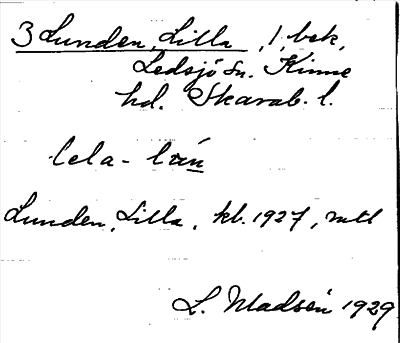 3 Lunden, Lilla, 1, bek,
Ledsjö sn. Kinne
hd. Skarab. l.
lela-
Lunden, Lilla, kl. 1927, mtl
L. Madsén 1929